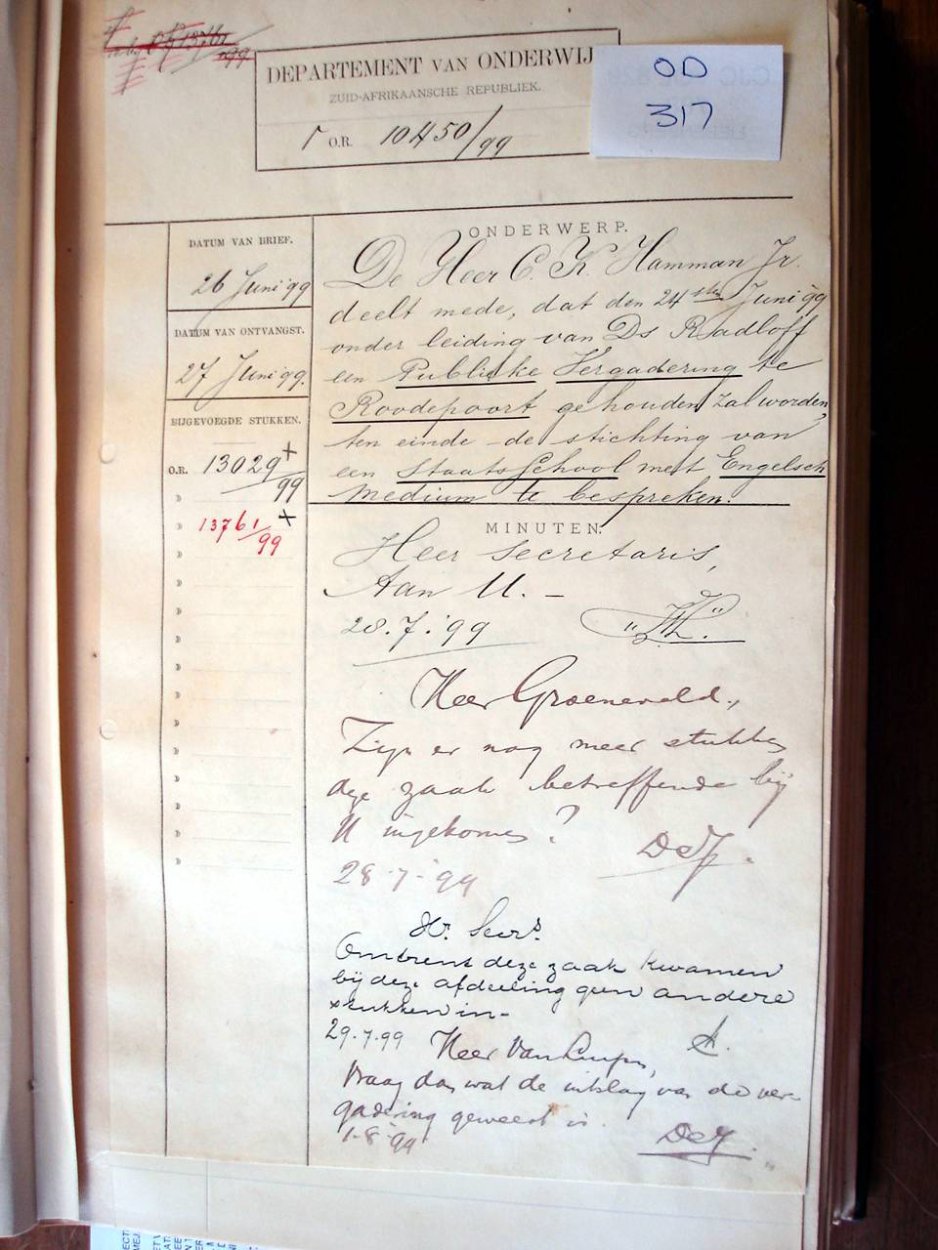 13761
99
DEPARTEMENT VAN ONDERWIJ
ZUID-AFRIKAANSCHE REPUBLIEK.
O.R. 10450/99
OD
317
DATUM VAN BRIEF.
26 Juni 99
DATUM VAN ONTVANGST.
27 Juni 99.
BIJGEVOEGDE STUKKEN.
O.R. 13029/99 +
13761/99 +
ONDERWERP.
De Heer C. K. Hamman Jr.
deelt mede, dat den 24sten Juni 99
onder leiding van Ds Radloff
een Publieke Vergadering te
Roodepoort gehouden zal worden,
ten einde de stichting van
een StaatsSchool met Engelsch
Medium te bespreken.
MINUTEN.
Heer Secretaris,
Aan U. –
28.7.'99
Heer Groeneveld,
Zijn er nog meer stukken
deze zaak betreffende bij
U ingekomen?
28-7-99
Hr. Secrs.
Omtrent deze zaak kwamen
bij deze afdeeling geen andere
stukken in -
29-7-99
Heer Van
Vraag dan wat de uitslag van de ver-
gadering geweest is.
1-8-99